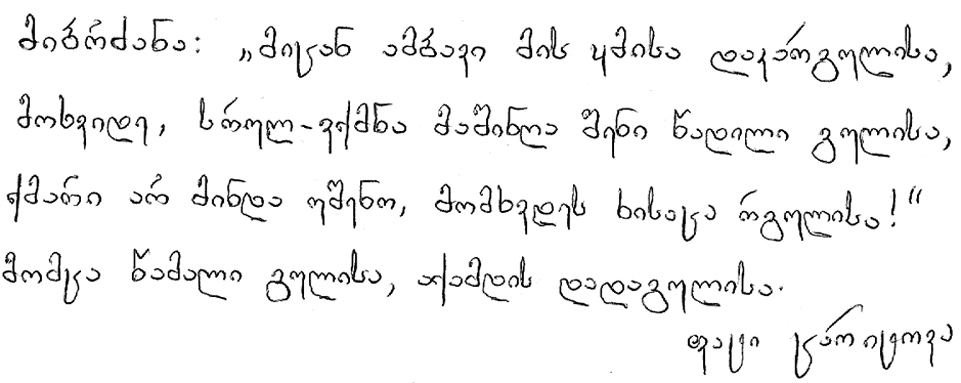 მიბრძანა: „მიცან ამბავი მის ყმისა დაკარგულისა,
მოხვიდე, სრულ-ვქმნა მაშინღა შენი წადილი გულისა,
ქმარი არ მინდა უშენო, მომხვდეს ხისაცა რგულისა!“
მომცა წამალი გულისა, აქამდის დადაგულისა.